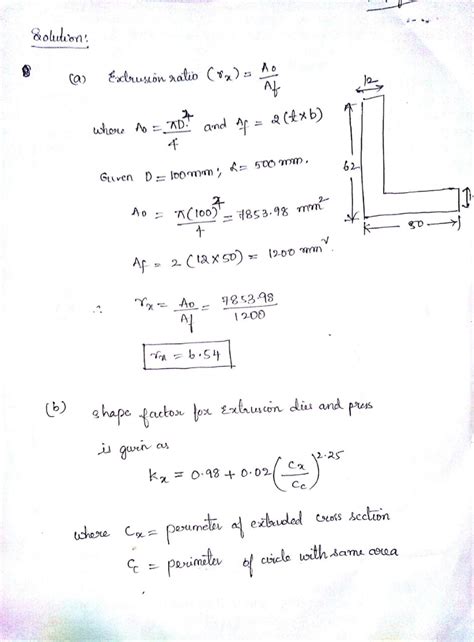 Solution:
(a) Extrusion ratio (rx) = Ao/Af
where Ao = πD²/4 and Af = 2(t×b)
Given D = 100mm; L = 500 mm.
Ao = π(100)²/4 = 7853.98 mm²
Af = 2(12×50) = 1200 mm²
∴ rx = Ao/Af = 7853.98/1200
rx = 6.54
12
62
50
(b) shape factor for Extrusion dies and press
is given as
Kx = 0.98 + 0.02 (Cx/Cc)^2.25
where Cx = perimeter of extruded cross section
Cc = perimeter of circle with same area